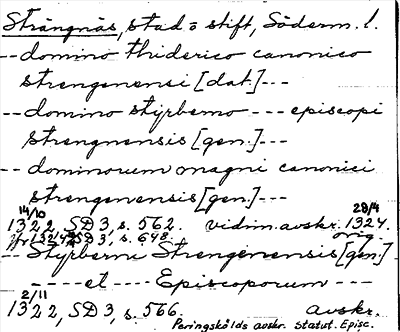 Strängnäs, stad o stift, Söderm. l.
-- domino thiderico canonico
strengenensi [dat.] ---
-- domino styrberno --- episcopi
strengnensis [gen.] ---
-- dominorum magni canonici
strengenensis [gen.] ---
14/10 28/4
1322, SD 3, s. 562. vidim. avskr. 1324.
1324 SD 3, s. 648. orig.
-- Styrberni Strengenensis [gen.]
---- et ---- Episcoporum ---
2/11
1322, SD 3, s. 566. avskr.
Peringskölds avskr. Statut. Episc.